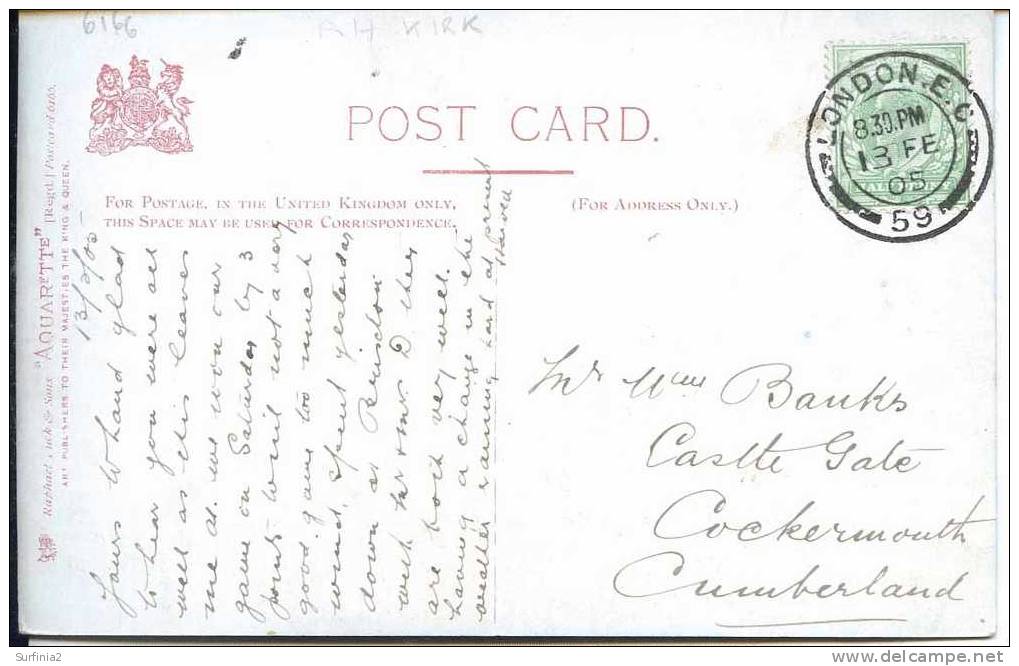 6166
A H KIRK
POST CARD.
FOR POSTAGE, IN THE UNITED KINGDOM ONLY,
THIS SPACE MAY BE USED FOR CORRESPONDENCE.
(FOR ADDRESS ONLY.)
LONDON. E.C
8.30.PM
13 FE
05
59
Raphael Tuck & Sons' "AQUARETTE" [Regd.] Postcard 6166.
ART PUBLISHERS TO THEIR MAJESTIES THE KING & QUEEN.
13/2/05
Yours to hand glad
to hear you were all
well as this leaves
me at. we won our
game on Saturday by 3
points to nil not a very
good game too much
wind, spent yesterday
down at
with Mr & Mrs D they
are both very well.
having a change in the
weather raining hard at present
Mr Wm Banks
Castle Gate
Cockermouth
Cumberland
Surfinia2